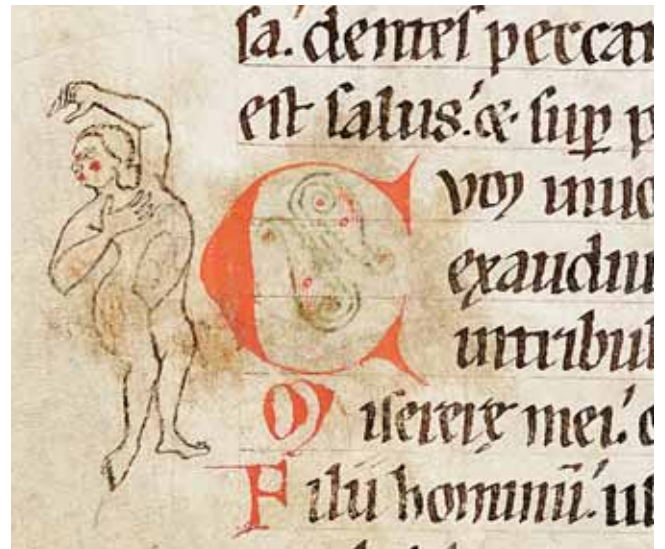 sa. dentes pecca
est salus. & sup p
Cum inuo
exaudiu
intribul
Miserere mei. e
Filii hominū. us